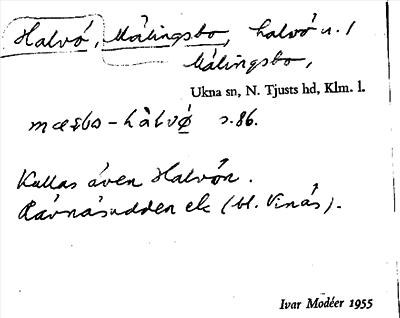 Halvö, Målingsbo, halvö u. 1
Målingsbo,
Ukna sn, N. Tjusts hd, Klm. l.
s. 86.
Kallas även Halvön.
Rävnäsudden el. (bl. Vinäs).
Ivar Modéer 1955